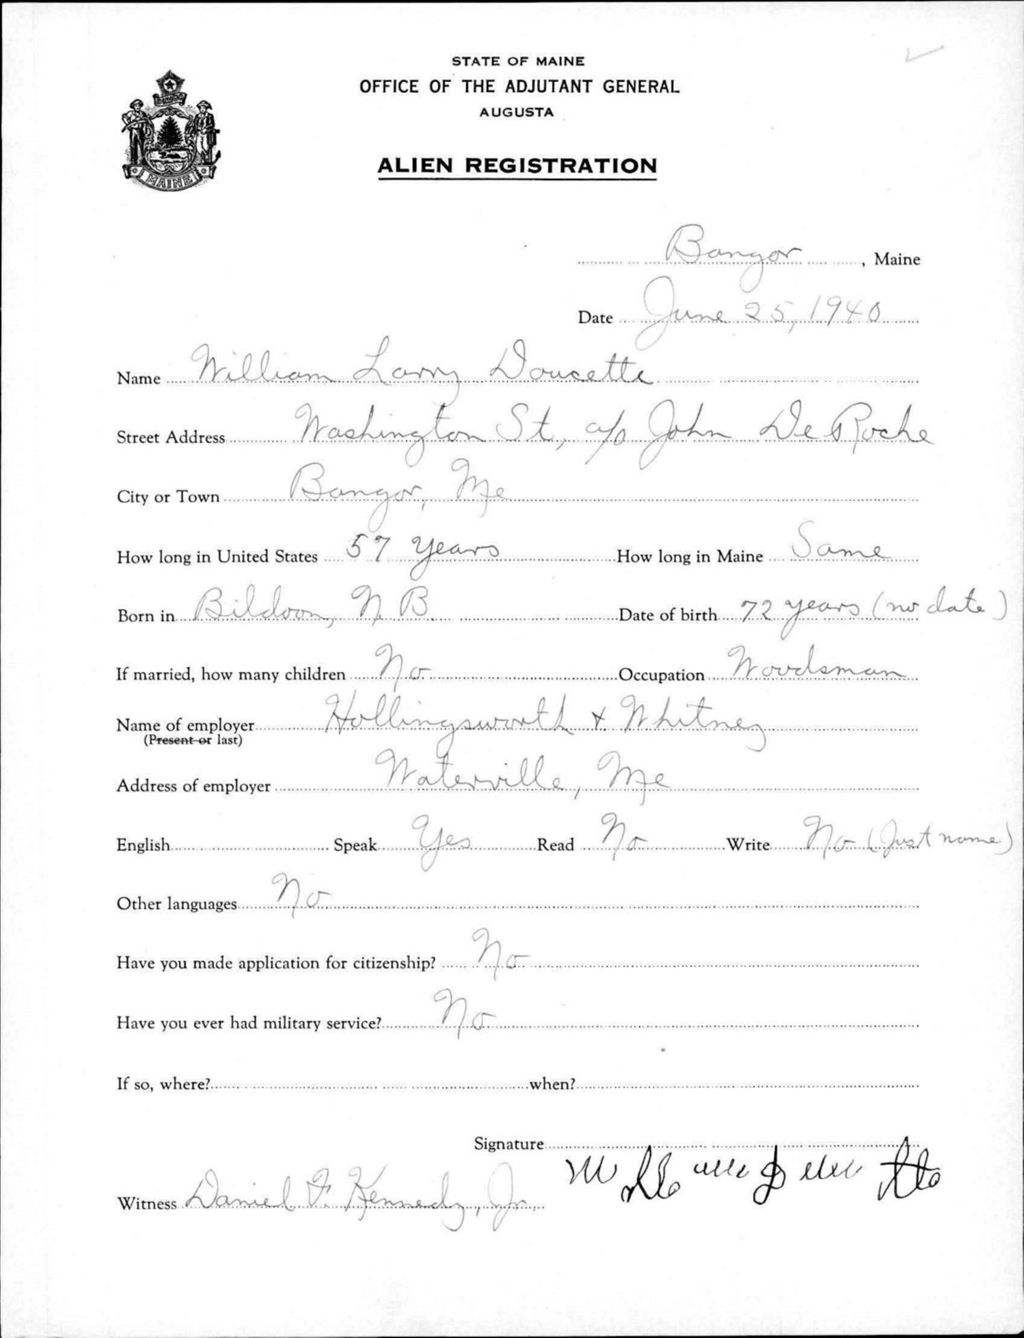 STATE OF MAINE
OFFICE OF THE ADJUTANT GENERAL
AUGUSTA
ALIEN REGISTRATION
MAINE
Bangor, Maine
Date June 25, 1940
Name William Larry Doucette
Street Address Washington St, c/o John DeRoche
City or Town Bangor, Me
How long in United States 57 years How long in Maine Same
Born in N.B. Date of birth 72 years (no date)
If married, how many children No Occupation Woodsman
Name of employer Hollingsworth + Whitney
(Present or last)
Address of employer Waterville, Me
English Speak Yes Read No Write No (Just name)
Other languages No
Have you made application for citizenship? No
Have you ever had military service? No
If so, where? when?
Signature
Witness Daniel F. Kennedy, Jr.